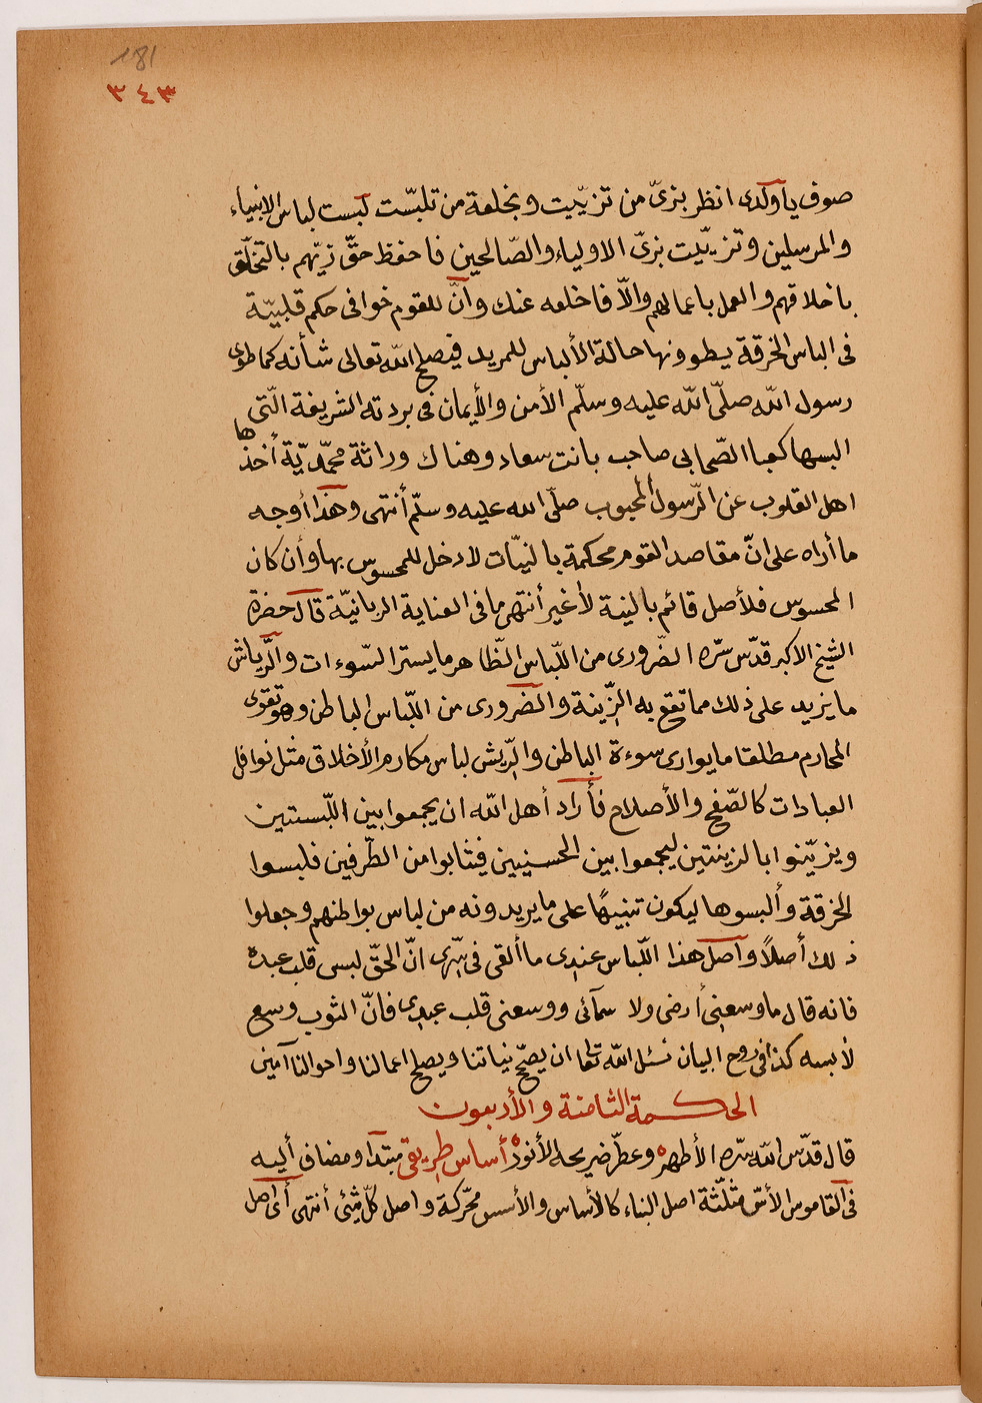 181
٣٤٣
صوف ياولدى انظر بزىّ من تزيّيت وبخلعة من تلبّست لبست لباس الانبياء
والمرسلين وتزيّيت بزىّ الاولياء والصّالحين فاحفظ حقّ زيّهم بالتخلّق
باخلاقهم والعمل باعمالهم والاّ فاخلعه عنك وانّ للقوم خوافى حكم قلبيّة
فى الباس الخرقة يطوونها حالة الألباس للمريد فيصلح الله تعالى شأنه كما طوى
رسول الله صلّى الله عليه وسلّم الأمن والأيمان فى بردته الشريفة الّتى
البسها كعبا الصّحابى صاحب بانت سعاد وهناك وراثة محمّديّة أخذها
اهل القلوب عن الرّسول المحبوب صلّى الله عليه وسلّم أنتهى وهذا أوجه
ما أراه على انّ مقاصد القوم محكمة بالنيّات لا دخل للمحسوس بها وأن كان
المحسوس فلأصل قائم بالنية لأغير أنتهى ما فى العناية الربانيّة قال حضرة
الشيخ الاكبر قدّس سّره الضّرورى من اللّباس الظّاهر مايستر السّوءات والرّياش
مايزيد على ذلك مما تقع به الزّينة والضّرورى من اللّباس الباطن وهو تقوى
المحارم مطلقا مايوارى سوءة الباطن والرّيش لباس مكارم الأخلاق مثل نوافل
العبادات كالصّفح والأصلاح فأراد أهل الله ان يجمعوا بين اللّبستين
ويزيّنوا بالزينتين ليجمعوا بين الحسنيين فيثابوا من الطّرفين فلبسوا
الخرقة وألبسوها ليكون تنبيهًا على مايريدونه من لباس بواطنهم وجعلوا
ذلك أصلاً وأصل هذا اللّباس عندى ماألقى فى سّرى انّ الحقّ لبس قلب عبده
فانه قال ماوسعنى أرضى ولا سمآئى ووسعنى قلب عبدى فانّ الثوب وسع
لأبسه كذا فى روح البيان نسئل الله تعا ان يصحّح نياتنا ويصلح اعمالنا واحوالنا آمين
الحكمة الثامنة والأربعون
قال قدّس الله سّره الأطهره وعطّر ضريحه الأنورْه أساس طريقى مبتدا ومضاف أليه
فى القاموس الأسّ مثلّثة اصل البناء كالأساس والأسس محّركة واصل كلّ شئى أنتهى أى اصل